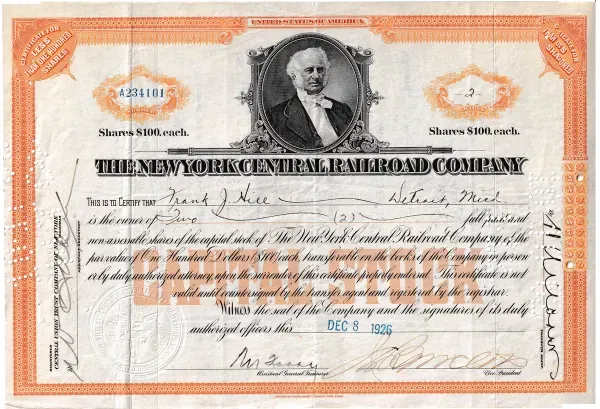 UNITED STATES OF AMERICA
CERTIFICATE FOR LESS THAN ONE HUNDRED SHARES
CERTIFICATE FOR LESS THAN ONE HUNDRED SHARES
A234101
-2-
Shares $100. each.
Shares $100. each.
THE NEW YORK CENTRAL RAILROAD COMPANY
THIS IS TO CERTIFY THAT Frank J. Hill Detroit, Mich.
is the owner of Two (2) full paid and
non-assessable shares of the capital stock of The New York Central Railroad Company of the
par value of One Hundred Dollars ($100) each, transferable on the books of the Company in person
or by duly authorized attorney, upon the surrender of this certificate properly endorsed. This certificate is not
valid until countersigned by the transfer agent and registered by the registrar.
Witness the seal of the Company and the signatures of its duly
authorized officers this DEC 8 1926
Assistant General Treasurer
Vice President
CENTRAL UNION TRUST COMPANY OF NEW YORK